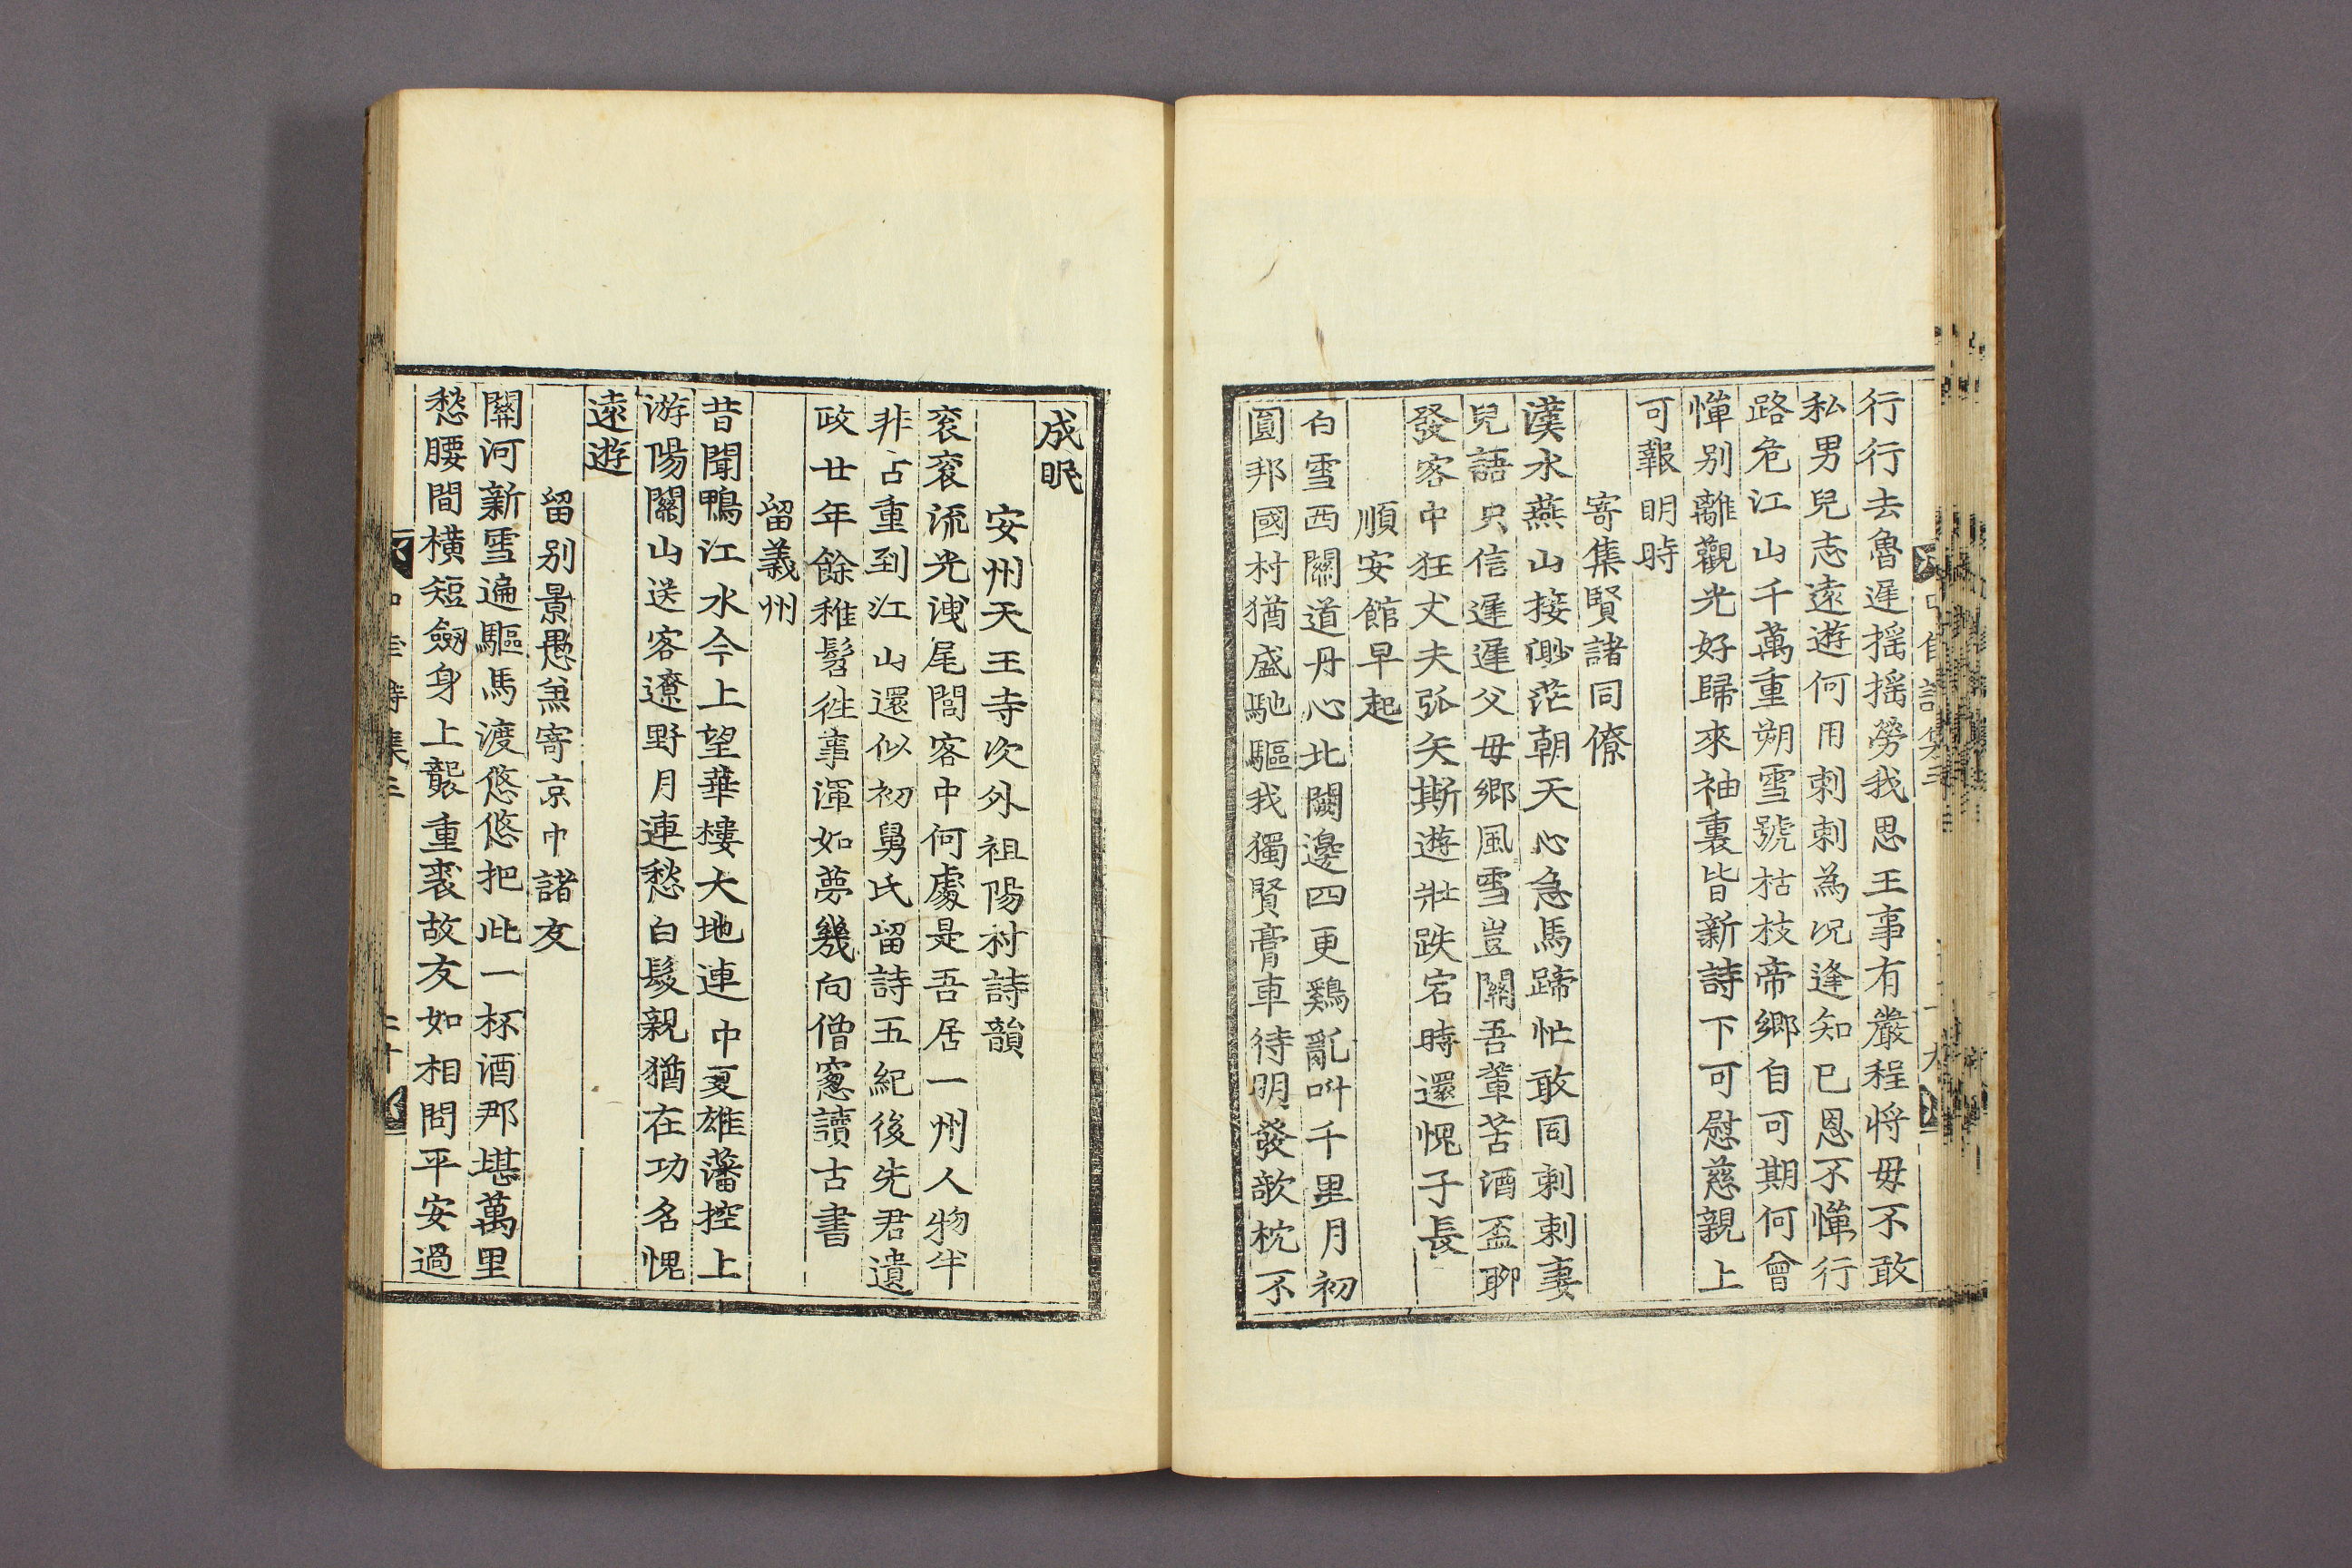 行行去魯遲摇摇勞我思王事有嚴程將毋不敢
私男兒志遠遊何用刺刺為况逢知已恩不憚行
路危江山千萬重朔雪號枯枝帝鄉自可期何曾
憚别離觀光好歸來袖裏皆新詩下可慰慈親上
可報明時
寄集賢諸同僚
漢水燕山接渺茫朝天心急馬蹄忙敢同刺刺妻
兒語只信遲遲父母鄉風雪豈關吾輩苦酒盃聊
發客中狂丈夫弧矢斯遊壯跌宕時還愧子長
順安館早起
白雪西關道丹心北闕邊四更鷄亂叫千里月初
圓邦國村猶盛馳驅我獨賢膏車待明發欹枕不
成眠
安州天王寺次外祖陽村詩韻
衮衮流光洩尾閭客中何處是吾居一州人物半
非古重到江山還似初舅氏留詩五紀後先君遺
政廿年餘稚髫徃事渾如夢幾向僧窓讀古書
留義州
昔聞鴨江水今上望華樓大地連中夏雄藩控上
游陽關山送客遼野月連愁白髮親猶在功名愧
遠遊
留别景愚兼寄京中諸友
關河新雪遍驅馬渡悠悠把此一杯酒那堪萬里
愁腰間横短劒身上襲重裘故友如相問平安過